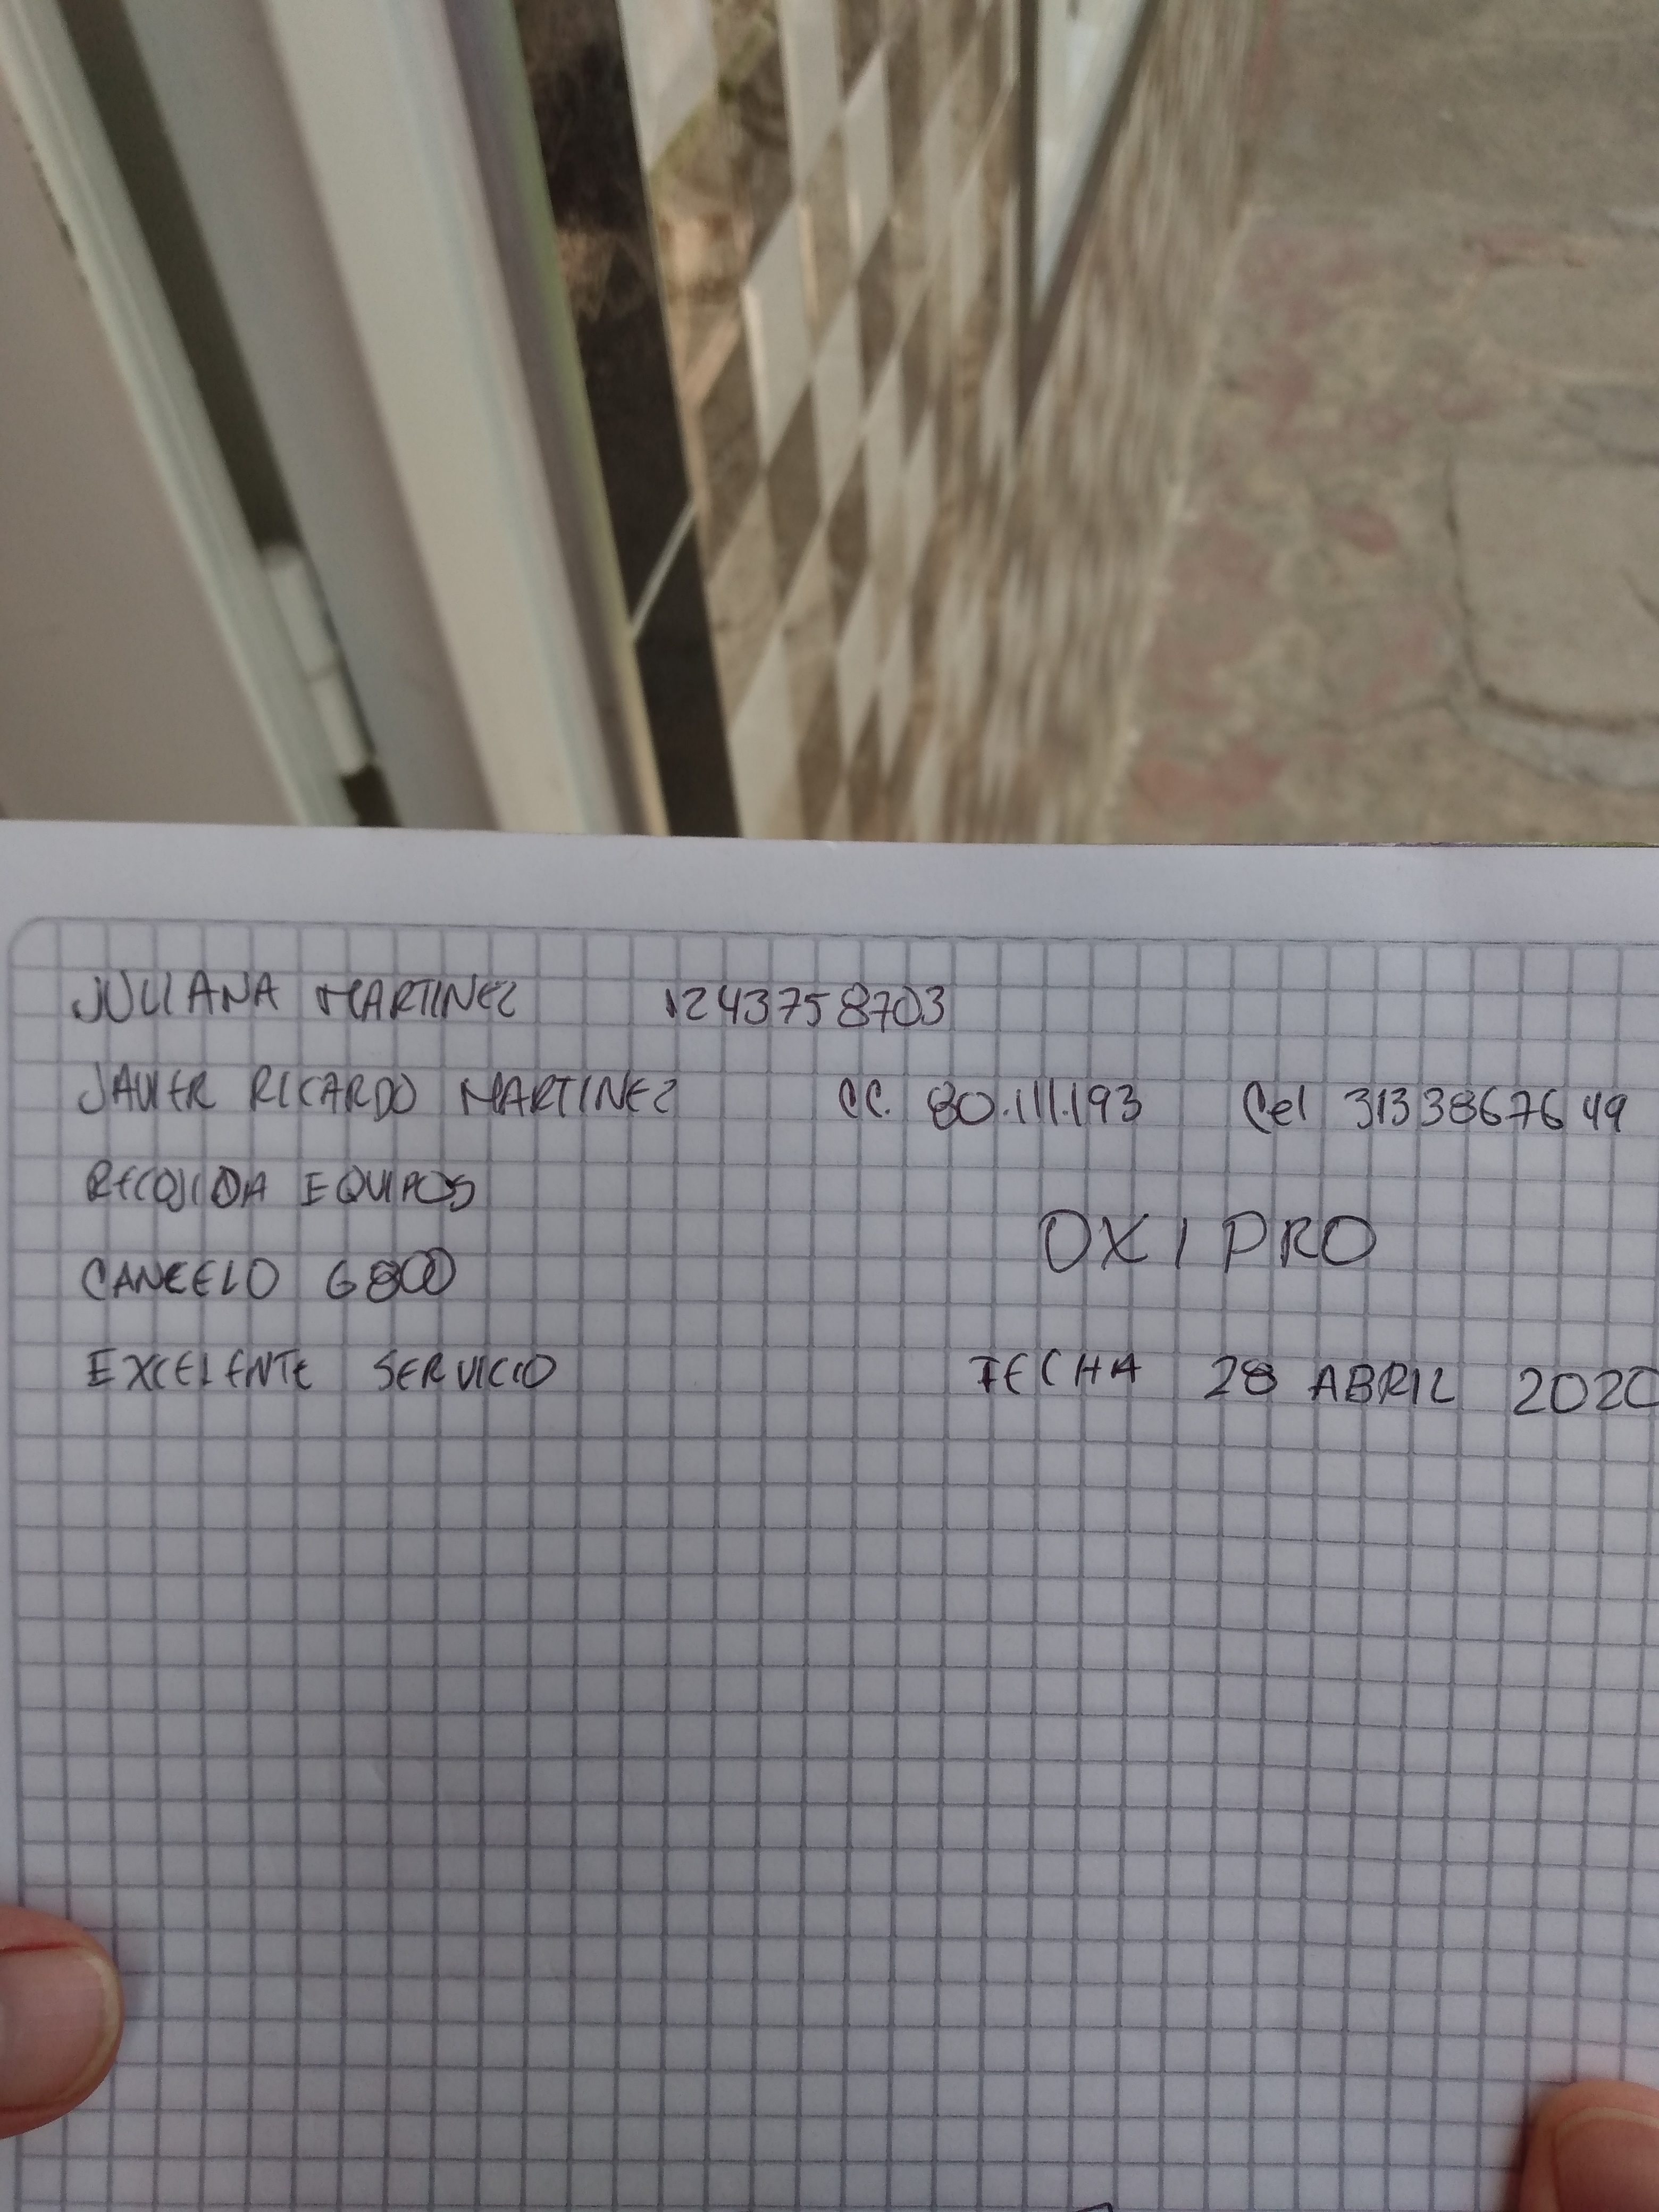 JULIANA MARTINEZ 1243758703
JAVIER RICARDO MARTINEZ CC. 80.111.193 Cel 3133867649
RECOJIDA EQUIPOS
OXI PRO
CANCELO 6800
EXCELENTE SERVICIO FECHA 28 ABRIL 2020